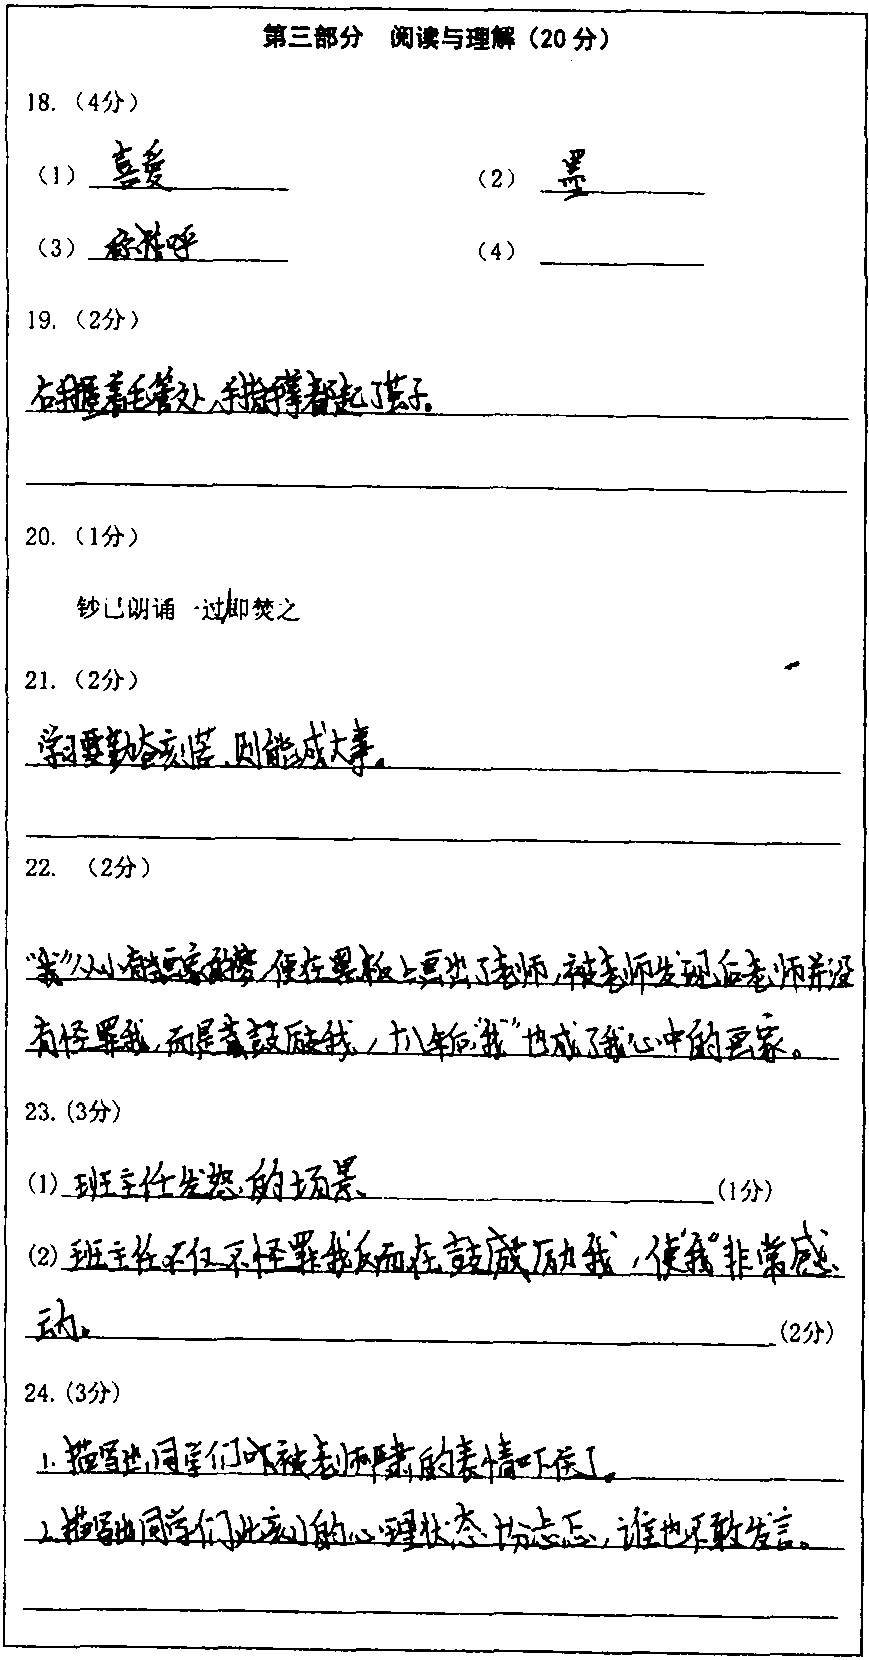 第三部分 阅读与理解（20分）
18.（4分）
（1）喜爱 （2）墨
（3）称呼 （4）
19.（2分）
右手握着毛管处，手指手掌都起了茧子。
20.（1分）
钞已朗诵一过/即焚之
21.（2分）
学习要勤奋刻苦，则能成大事。
22.（2分）
"我"从小有当画家的梦，便在黑板上画出了老师，被老师发现后老师并没
有怪罪我，而是鼓励我，十八年后"我"也成了我心中的画家。
23.(3分)
(1)班主任发怒的场景。(1分)
(2)班主任不仅不怪罪我反而在鼓励我，使"我"非常感
动。(2分)
24.(3分)
1.描写出同学们被老师严肃的表情吓住了。
2.描写出同学们此刻的心理状态十分忐忑，谁也不敢发言。